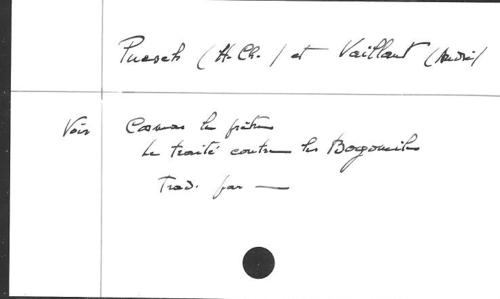 Puech (H.Ch.) et Vaillant (André)
Voir Cosmas le prêtre
Le traité contre les Bogomiles
Trad. par —